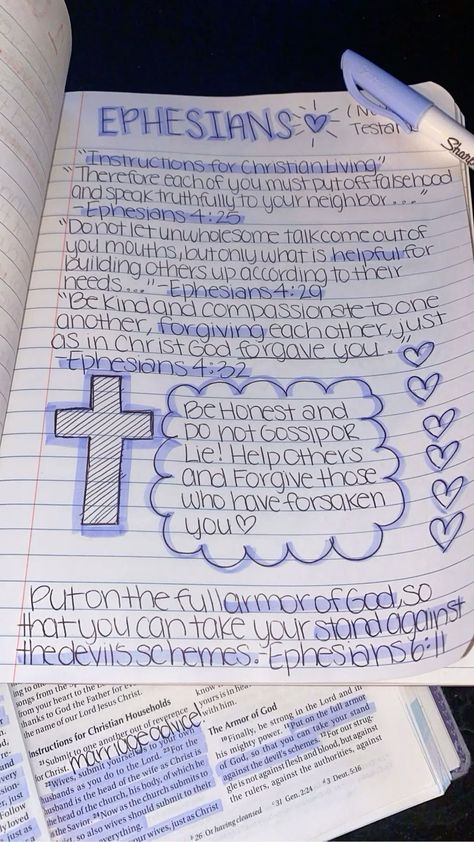 EPHESIANS
Testam
Sharp
"Instructions for Christian Living"
"Therefore each of you must put off falsehood
and speak truthfully to your neighbor...."
-Ephesians 4:25
"Do not let unwholesome talk come out of
you mouths, but only what is helpful for
building others up according to their
needs..."-Ephesians 4:29
"Be kind and compassionate to one
another, forgiving each other, just
as in Christ God forgave you."
-Ephesians 4:32
Be Honest and
Do not Gossip OR
Lie! Help others
and Forgive those
who have forsaken
you
Put on the full armor of God, so
that you can take your stand against
the devil's schemes. Ephesians 6:11
songs from the S
from your heart to the
thanks to God the Father for ev
the name of our Lord Jesus Christ.
Instructions for Christian Households
21 Submit to one another out of reverence
for Christ.
marriage advice!
22 Wives, submit yourselves to your own
husbands as you do to the Lord. 23 For the
husband is the head of the wife as Christ is
the head of the church, his body, of which he
the Savior. 24 Now as the church submits to
st, so also wives should submit to their
everything.
your wives, just as Christ
know
yours is in heav
with him.
The Armor of God
10 Finally, be strong in the Lord and in
his mighty power. 11 Put on the full armor
of God, so that you can take your stand
against the devil's schemes. 12 For our strug-
gle is not against flesh and blood, but against
the rulers, against the authorities, against
b 26 Or having cleansed
c 31 Gen. 2:24
d 3 Deut. 5:16